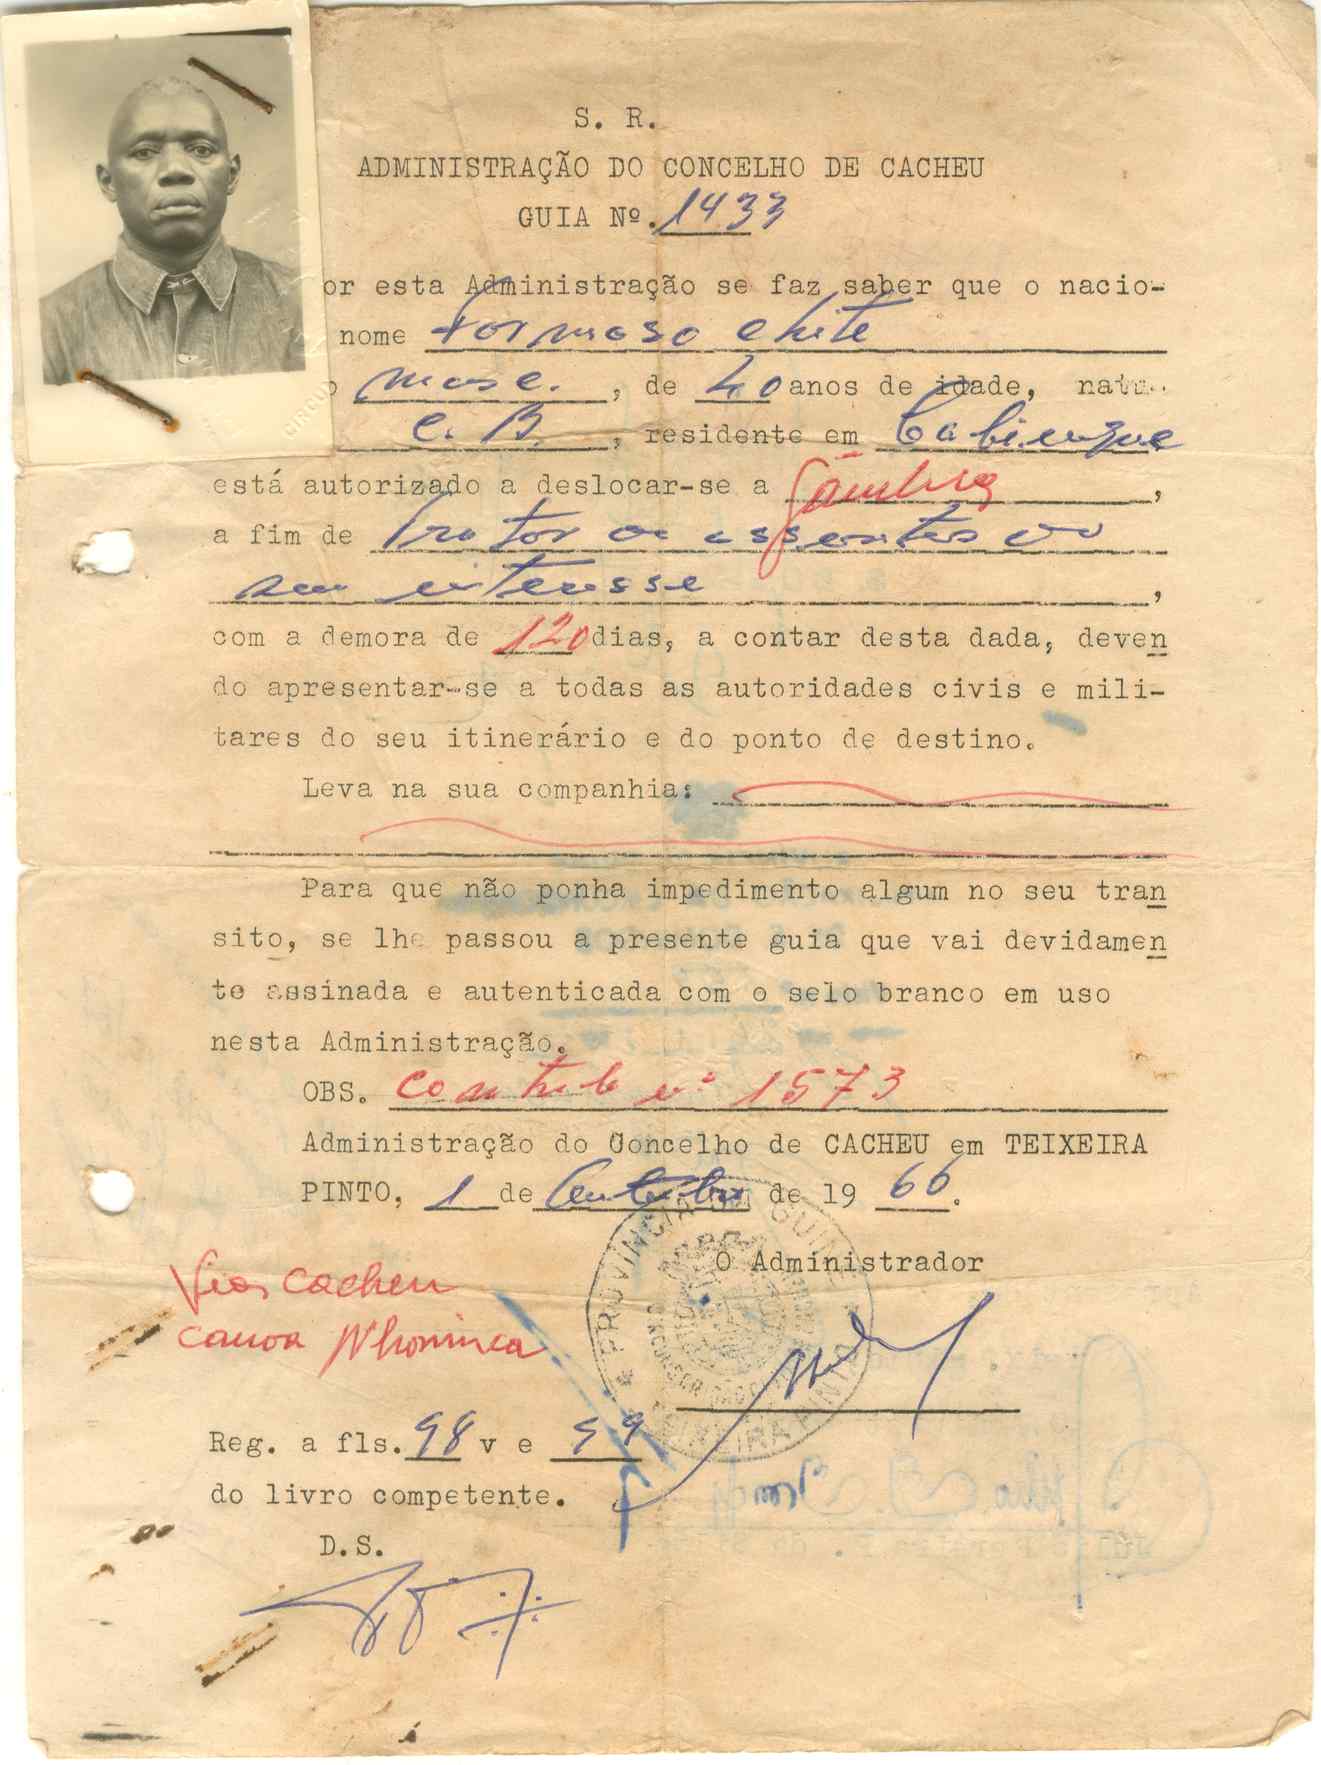 S. R.
ADMINISTRAÇÃO DO CONCELHO DE CACHEU
GUIA Nº. 1433
or esta Administração se faz saber que o nacio-
nome Formoso chite
o masc., de 40 anos de idade, natu
C. B., residente em Cabienque
está autorizado a deslocar-se a Gâmbia,
a fim de tratar os assentos do
seu interesse,
com a demora de 120 dias, a contar desta dada, deven
do apresentar-se a todas as autoridades civis e mili-
tares do seu itinerário e do ponto de destino.
Leva na sua companhia:
Para que não ponha impedimento algum no seu tran
sito, se lhe passou a presente guia que vai devidamen
te assinada e autenticada com o selo branco em uso
nesta Administração.
OBS. Contrib nº 1573
Administração do Concelho de CACHEU em TEIXEIRA
PINTO, 1 de Outubro de 19 66.
PROVINCIA DA GUINÉ
O Administrador
TEIXEIRA PINTO
Vias Cacheu
canoa N'hominca
Reg. a fls. 98 v e 99
do livro competente.
D.S.